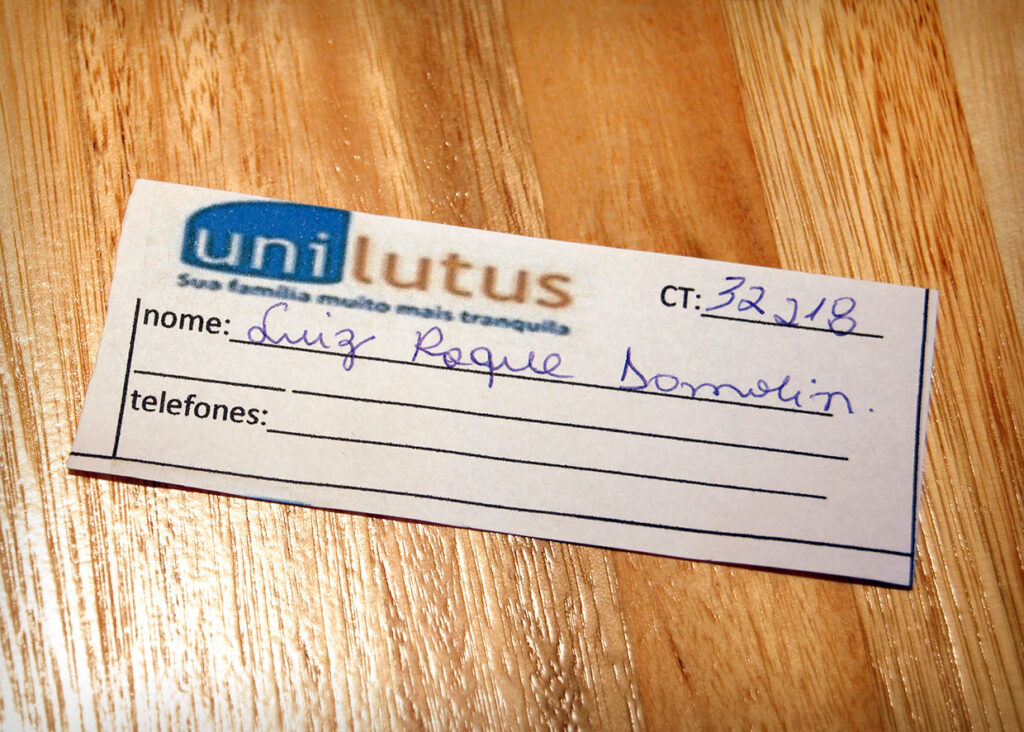 unilutus
Sua família muito mais tranquila
CT: 32218
nome: Luiz Roque Domolin.
telefones: